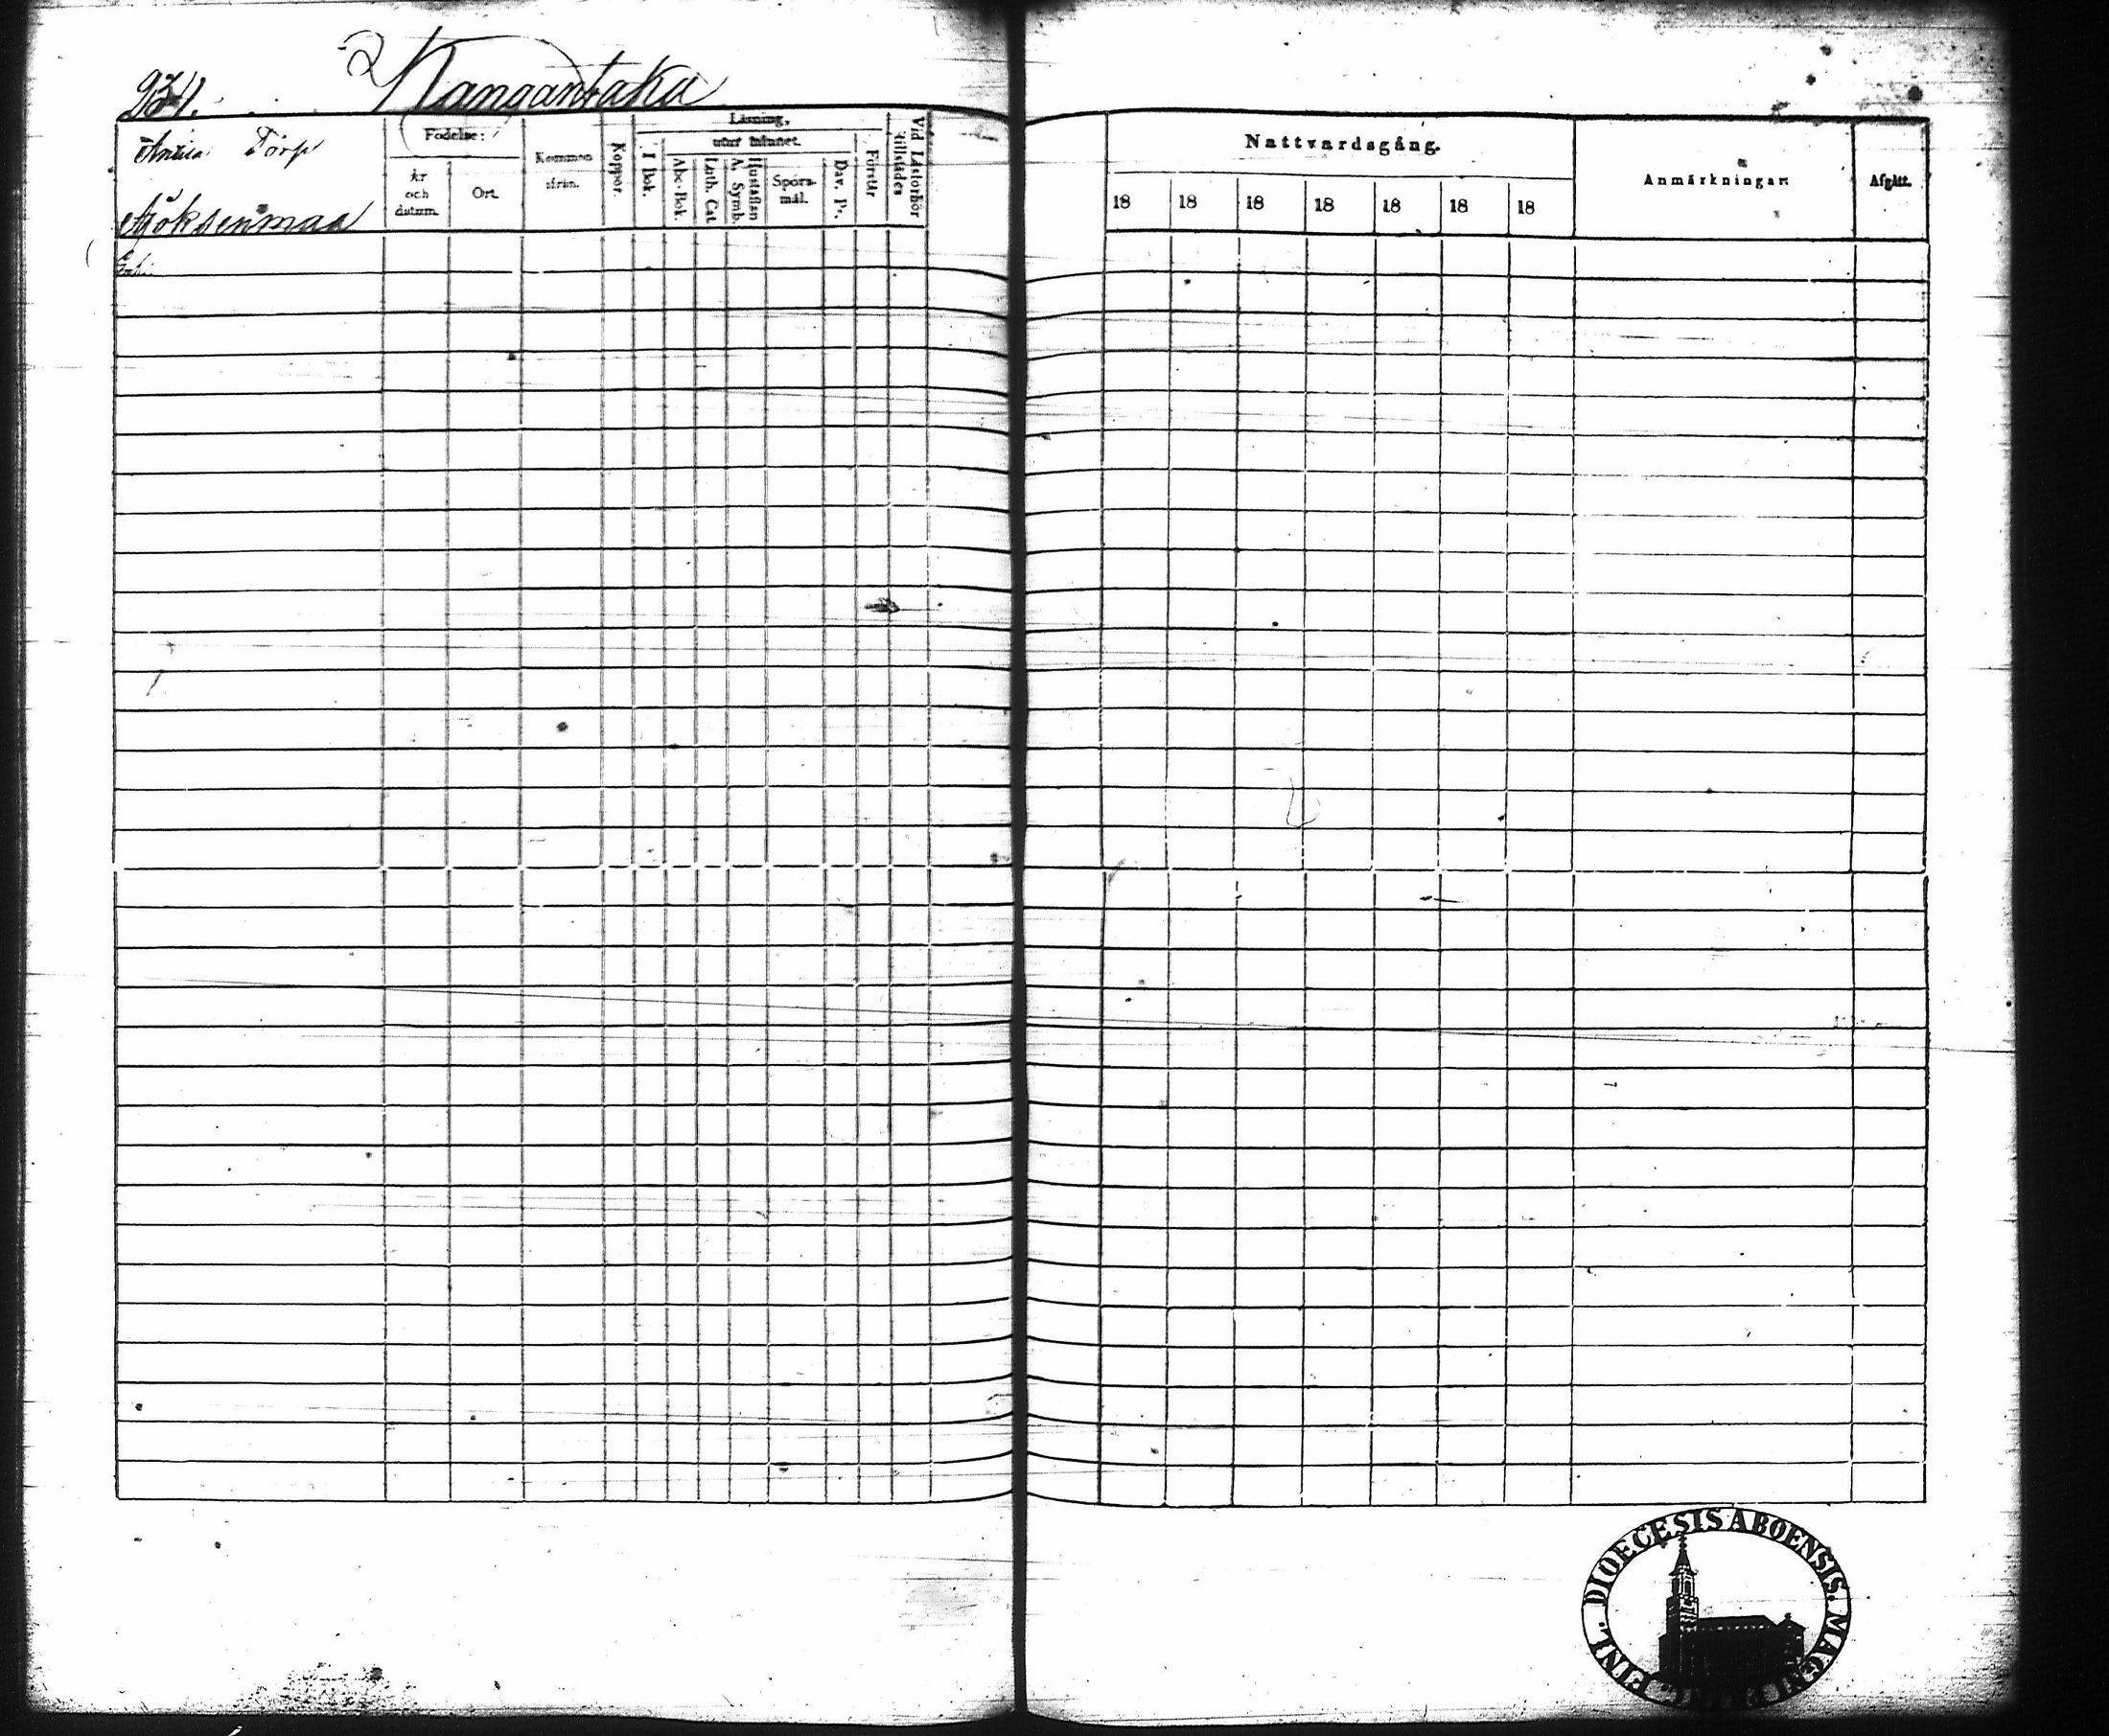 234.
Kangantaka
Torp
Födelse:
År och datum.
Ort.
Kommen ifrån.
Koppor.
Läsning,
utur minnet.
I Bok.
Abc-Bok.
Luth. Cat.
Hustaflan A. Symb.
Spörs-mål.
Dav. Ps.
Förstår
Vid Läsförhör tillstädes
Nattvardsgång.
18 18 18 18 18 18 18
Anmärkningar.
Afgått.
DIOECESIS ABOENSIS. MAGNI